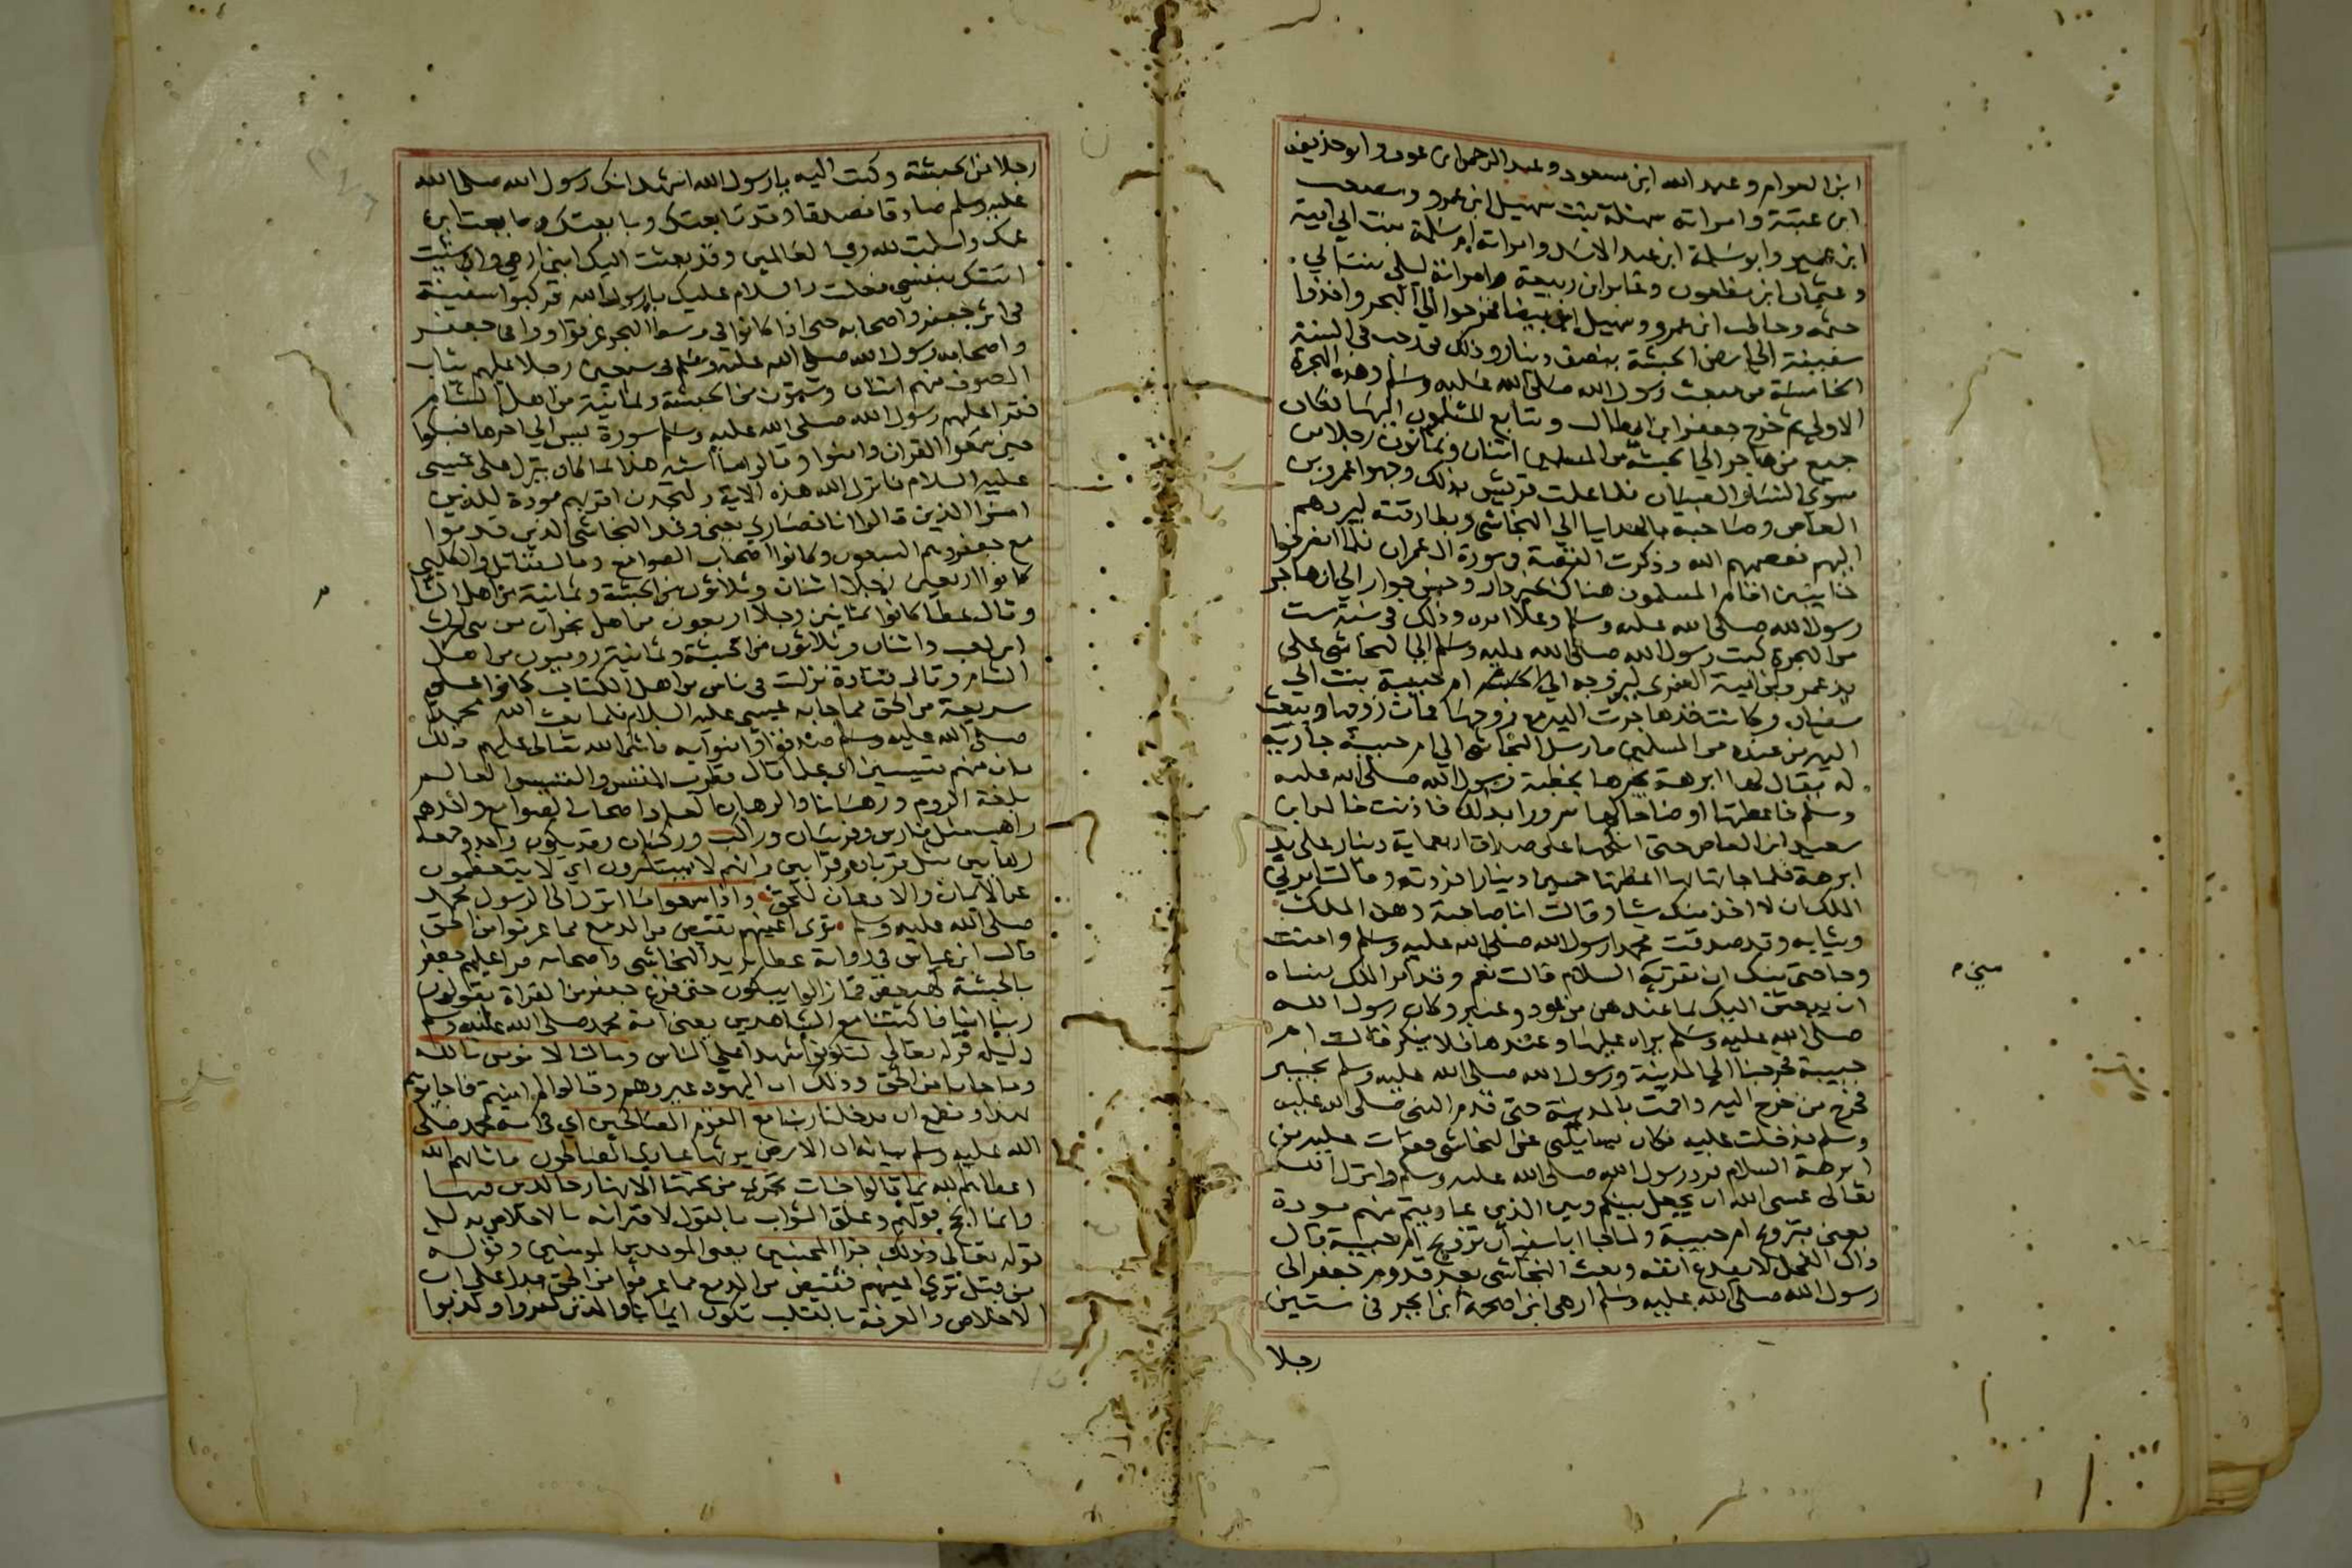 ابن العوام وعبد الله ابن مسعود وعبد الرحمن ابن عوف وابو حذيفه
ابن عتبة وامراته سهلة بنت سهيل ابن عمرو ومصعب
ابن عمير وابو سلمة ابن عبد الاسد وامراته ام سلمة بنت ابي امية
وعثمان ابن مظعون وعامر ابن ربيعة وامراته ليلى بنت ابي
حثمه وحاطب ابن عمرو وسهيل ابن بيضا فخرجوا الي البحر واخذوا
سفينة الي ارض الحبشة بنصف دينار وذلك في رجب في السنة
الخامسة من مبعث رسول الله صلى الله عليه وسلم وهذه الهجرة
الاولي ثم خرج جعفر ابن ابي طالب وتتابع المسلمون اليها فكان
جميع من هاجر الي الحبشة من المسلمين اثنان وثمانون رجلا من
سوي النساء والصبيان فلما علمت قريش بذلك وجهوا عمرو بن
العاص وصاحبه بالهدايا الي النجاشي وبطارقته ليردهم
اليهم فعصمهم الله وذكرت القصة في سورة ال عمران فلما انصرفوا
خايبين اقام المسلمون هناك بخير دار وحسن جوار الي ان هاجر
رسول الله صلى الله عليه وسلم وعلا امره وذلك في سنة ست
من الهجرة كتب رسول الله صلى الله عليه وسلم الي النجاشي على
يد عمرو بن امية الضمري ليزوجه ام حبيبة بنت ابي
سفيان وكانت قد هاجرت اليه مع زوجها فمات زوجها ويبعث
اليه من عنده من المسلمين فارسل النجاشي الي ام حبيبة جارية
له يقال لها ابرهة يخبرها بخطبة رسول الله صلى الله عليه
وسلم فاعطتها اوضاحا لها سرورا بذلك فاذنت خالد ابن
سعيد ابن العاص حتى انكحها على صداق اربعماية دينار على يد
ابرهة فلما جاتها بها اعطتها خمسين دينارا فردته وقالت امرني
الملك ان لا اخذ منك شيا وقالت انا صاحبة دهن الملك
وثيابه وقد صدقت محمدا رسول الله صلى الله عليه وسلم وامنت
وحاجتي منك ان تقريه السلام قالت نعم وقد امر الملك نساه
ان يبعثن اليك بما عندهن من عود وعنبر وكان رسول الله
صلى الله عليه وسلم يراه عليها وعندها فلا ينكر قالت ام
حبيبة فخرجنا الي المدينة ورسول الله صلى الله عليه وسلم بخيبر
فخرج من خرج اليه واقمت بالمدينة حتى قدم النبي صلى الله عليه
وسلم فدخلت عليه فكان يسايلني عن النجاشي فقرات عليه من
ابرهة السلام فرد رسول الله صلى الله عليه وسلم وانزل الله
تعالى عسى الله ان يجعل بينكم وبين الذين عاديتم منهم مودة
يعني بتزوج ام حبيبة ولما جا ابا سفيان تزويج ام حبيبة قال
ذاك الفحل لا يقدع انفه وبعث النجاشي بعد قدوم جعفر الى
رسول الله صلى الله عليه وسلم ارهى ابن اصحمة ابن ابجر في ستين
رجلا
رجلا من الحبشة وكتب اليه يا رسول الله اشهد انك رسول الله صلى الله
عليه وسلم صادقا مصدقا وقد تابعتك وبايعتك وبايعت ابن
عمك واسلمت لله رب العالمين وقد بعثت اليك ابني ارهي وان شئت
اتيتك بنفسي فعلت والسلام عليك يا رسول الله فركبوا سفينة
في اثر جعفر واصحابه حتى اذا كانوا في وسط البحر غرقوا ووافى جعفر
واصحابه رسول الله صلى الله عليه وسلم في سبعين رجلا عليهم ثياب
الصوف منهم اثنان وستون من الحبشة وثمانية من اهل الشام
فقرا عليهم رسول الله صلى الله عليه وسلم سورة يس الي اخرها فبكوا
حين سمعوا القران وامنوا وقالوا ما اشبه هذا بما كان ينزل على عيسى
عليه السلام فانزل الله هذه الاية ولتجدن اقربهم مودة للذين
امنوا الذين قالوا انا نصاري يعني وفد النجاشي الذين قدموا
مع جعفر وهم السبعون وكانوا اصحاب الصوامع وقال مقاتل والكلبي
كانوا اربعين رجلا اثنان وثلاثون من الحبشة وثمانية من اهل الشام
وقال عطا كانوا ثمانين رجلا اربعون من اهل نجران من بني الحرث
ابن كعب واثنان وثلاثون من الحبشة وثمانية روميون من اهل
الشام وقال قتادة نزلت في ناس من اهل الكتاب كانوا على
شريعة من الحق مما جا به عيسى عليه السلام فلما بعث الله محمدا
صلى الله عليه وسلم صدقوا وامنوا به فاثنى الله تعالى عليهم ذلك
بان منهم قسيسين اي علما قال قطرب القس والقسيس العالم
بلغة الروم ورهبانا والرهبان العباد اصحاب الصوامع واحدهم
راهب مثل فارس وفرسان وراكب وركبان وقد يكون واحد وجمعه
رهابين مثل قربان وقرابين وانهم لا يستكبرون اي لا يتعظمون
عن الايمان والاذعان للحق واذا سمعوا ما انزل الى الرسول محمد
صلى الله عليه وسلم ترى اعينهم تفيض من الدمع مما عرفوا من الحق
قال ابن عباس في رواية عطا يريد النجاشي واصحابه قرا عليهم جعفر
بالحبشة كهيعص فما زالوا يبكون حتى فرغ جعفر من القراة يقولون
ربنا امنا فاكتبنا مع الشاهدين يعني امة محمد صلى الله عليه وسلم
دليله قوله تعالى لتكونوا شهدا على الناس وما لنا لا نومن بالله
وما جانا من الحق وذلك ان اليهود عيروهم وقالوا لم امنتم فاجابوهم
بهذا ونطمع ان يدخلنا ربنا مع القوم الصالحين اي في امة محمد صلى
الله عليه وسلم بيانه ان الارض يرثها عبادي الصالحون فاثابهم الله
اعطاهم الله بما قالوا جنات تجري من تحتها الانهار خالدين فيها
وانما انجح قولهم وعلق الثواب بالقول لاقترانه بالاخلاص بدليل
قوله تعالى وذلك جزا المحسنين يعني الموحدين المومنين وقوله
من قبل ترى اعينهم تفيض من الدمع مما عرفوا من الحق يدل على ان
الاخلاص والمعرفة بالقلب تكون ايمانا والذين كفروا وكذبوا